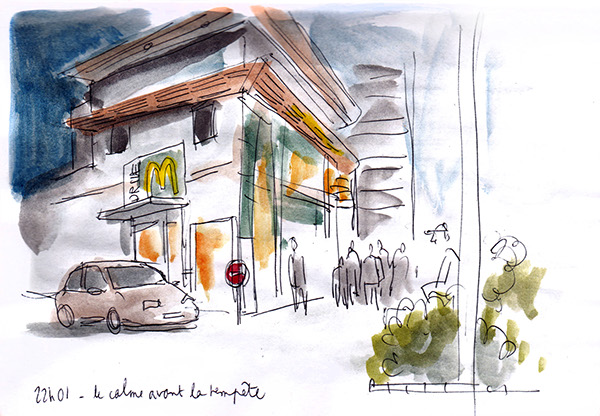 M
22h01 - le calme avant la tempête